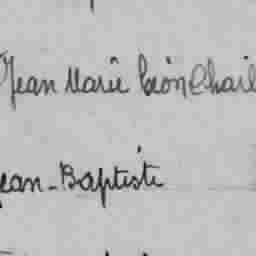 Jean Marie Léon Chail
ean-Baptiste